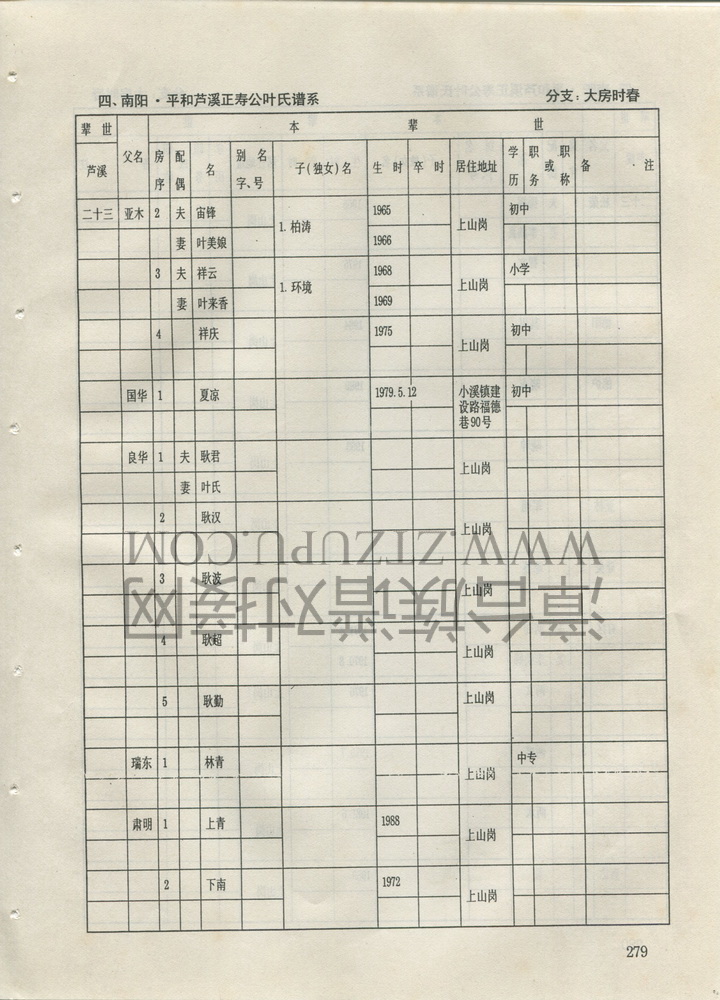 四、南阳·平和芦溪正寿公叶氏谱系 分支：大房时春
辈 世 本 辈 世
芦溪 父名 房序 配偶 名 别名字、号 子(独女)名 生时 卒时 居住地址 学历 职务或职称 备注
二十三 亚木 2 夫 宙锋 1.柏涛 1965 上山岗 初中
妻 叶美娘 1966
3 夫 祥云 1.环境 1968 上山岗 小学
妻 叶来香 1969
4 祥庆 1975 上山岗 初中
国华 1 夏凉 1979.5.12 小溪镇建设路福德巷90号 初中
良华 1 夫 耿君 上山岗
妻 叶氏
2 耿汉 上山岗
WWW.ZTZUPU.COM
3 耿波 上山岗
漳台族谱对接网
4 耿超 上山岗
5 耿勤 上山岗
瑞东 1 林青 上山岗 中专
肃明 1 上青 1988 上山岗
2 下南 1972 上山岗
279